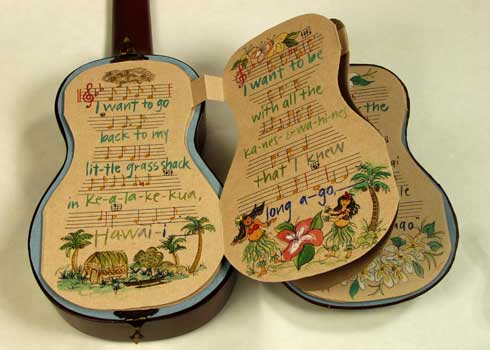 I want to go
back to my
lit-tle grass shack
in Ke-a-la-ke-kua,
Hawai-i,
I want to be
with all the
ka-nes- & wa-hi-nes
that I knew
long a-go.
the
ago"